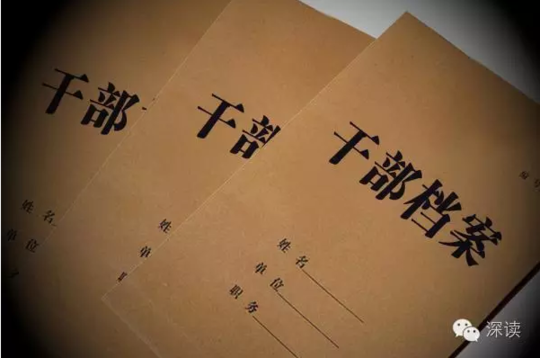 干部
姓名
单位
干部
姓名
单位
干部档案
姓名
单位
职务
深读